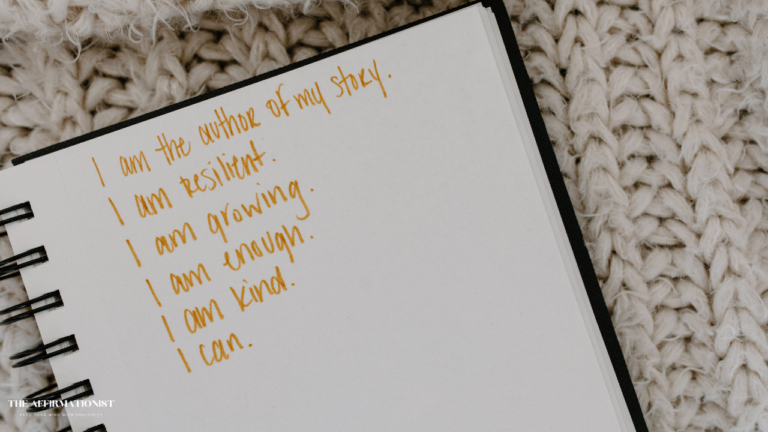 I am the author of my story.
I am resilient.
I am growing.
I am enough.
I am kind.
I can.
THE AFFIRMATIONIST